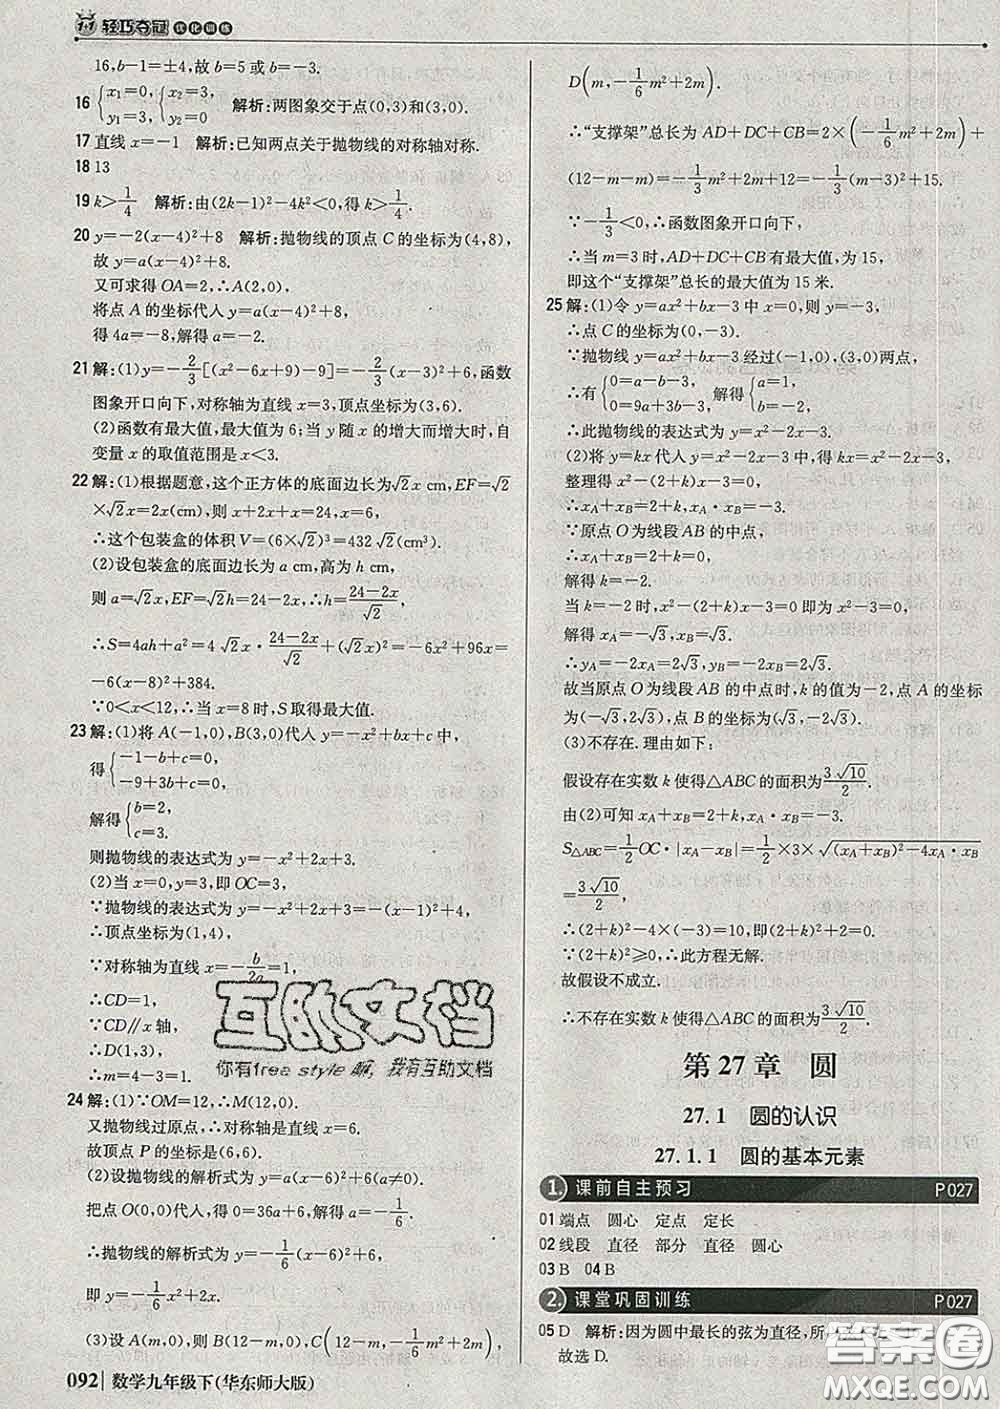 1+1 轻巧夺冠 优化训练
16,b−1=±4,故 b=5 或 b=−3.
16 {x₁=0, y₁=3, {x₂=3, y₂=0 解析:两图象交于点(0,3)和(3,0).
17 直线 x=−1 解析:已知两点关于抛物线的对称轴对称.
18 13
19 k>1/4 解析:由(2k−1)²−4k²<0,得 k>1/4.
20 y=−2(x−4)²+8 解析:抛物线的顶点 C 的坐标为(4,8),
故 y=a(x−4)²+8.
又可求得 OA=2,∴A(2,0).
将点 A 的坐标代入 y=a(x−4)²+8,
得 4a=−8,解得 a=−2.
21 解:(1)y=−2/3[(x²−6x+9)−9]=−2/3(x−3)²+6,函数
图象开口向下,对称轴为直线 x=3,顶点坐标为(3,6).
(2)函数有最大值,最大值为 6;当 y 随 x 的增大而增大时,自
变量 x 的取值范围是 x<3.
22 解:(1)根据题意,这个正方体的底面边长为√2x cm,EF=√2
×√2x=2x(cm),则 x+2x+x=24,x=6,
∴这个包装盒的体积 V=(6×√2)³=432√2(cm³).
(2)设包装盒的底面边长为 a cm,高为 h cm,
则 a=√2x,EF=√2h=24−2x,∴h=(24−2x)/√2,
∴S=4ah+a²=4√2x·(24−2x)/√2+(√2x)²=−6x²+96x=
−6(x−8)²+384.
∵0<x<12,∴当 x=8 时,S 取得最大值.
23 解:(1)将 A(−1,0),B(3,0)代入 y=−x²+bx+c 中,
得{−1−b+c=0, −9+3b+c=0,
解得{b=2, c=3.
则抛物线的表达式为 y=−x²+2x+3.
(2)当 x=0,y=3,即 OC=3,
∵抛物线的表达式为 y=−x²+2x+3=−(x−1)²+4,
∴顶点坐标为(1,4),
∵对称轴为直线 x=−b/2a=1,
∴CD=1,
∵CD∥x 轴,
∴D(1,3),
∴m=4−3=1.
24 解:(1)∵OM=12,∴M(12,0).
又抛物线过原点,∴对称轴是直线 x=6.
故顶点 P 的坐标是(6,6).
(2)设抛物线的解析式为 y=a(x−6)²+6,
把点 O(0,0)代入,得 0=a(0−6)²+6,即 a=−1/6.
∴抛物线的解析式为 y=−1/6(x−6)²+6,
即 y=−1/6x²+2x.
(3)设 A(m,0),则 B(12−m,0),C(12−m,−1/6m²+2m),
092 数学九年级下(华东师大版)
D(m,−1/6m²+2m).
∴"支撑架"总长为 AD+DC+CB=2×(−1/6m²+2m)+
(12−m−m)=−1/3m²+2m+12=−1/3(m−3)²+15.
∵−1/3<0,∴函数图象开口向下,
∴当 m=3 时,AD+DC+CB 有最大值,为 15,
即这个"支撑架"总长的最大值为 15 米.
25 解:(1)令 y=ax²+bx−3 中 x=0,则 y=−3,
∴点 C 的坐标为(0,−3).
∵抛物线 y=ax²+bx−3 经过(−1,0),(3,0)两点,
∴有{0=a−b−3, 0=9a+3b−3, 解得{a=1, b=−2.
∴此抛物线的表达式为 y=x²−2x−3.
(2)将 y=kx 代入 y=x²−2x−3 中,得 kx=x²−2x−3,
整理得 x²−(2+k)x−3=0,
∴x_A+x_B=2+k,x_A·x_B=−3.
∵原点 O 为线段 AB 的中点,
∴x_A+x_B=2+k=0,
解得 k=−2.
当 k=−2 时,x²−(2+k)x−3=0 即为 x²−3=0,
解得 x_A=−√3,x_B=√3.
∴y_A=−2x_A=2√3,y_B=−2x_B=−2√3.
故当原点 O 为线段 AB 的中点时,k 的值为−2,点 A 的坐标
为(−√3,2√3),点 B 的坐标为(√3,−2√3).
(3)不存在.理由如下:
假设存在实数 k 使得△ABC 的面积为3√10/2.
由(2)可知 x_A+x_B=2+k,x_A·x_B=−3,
S△ABC=1/2OC·|x_A−x_B|=1/2×3×√((x_A+x_B)²−4x_A·x_B)
=3√10/2,
∴(2+k)²−4×(−3)=10,即(2+k)²+2=0.
∵(2+k)²≥0,∴此方程无解.
故假设不成立.
∴不存在实数 k 使得△ABC 的面积为3√10/2.
第 27 章 圆
27.1 圆的认识
27.1.1 圆的基本元素
1. 课前自主预习 P027
01 端点 圆心 定点 定长
02 线段 直径 部分 直径 圆心
03 B 04 B
2. 课堂巩固训练 P027
05 D 解析:因为圆中最长的弦为直径,所
故选 D.
互助文档
你有free style嘛,我有互助文档
答案圈
MXQE.COM